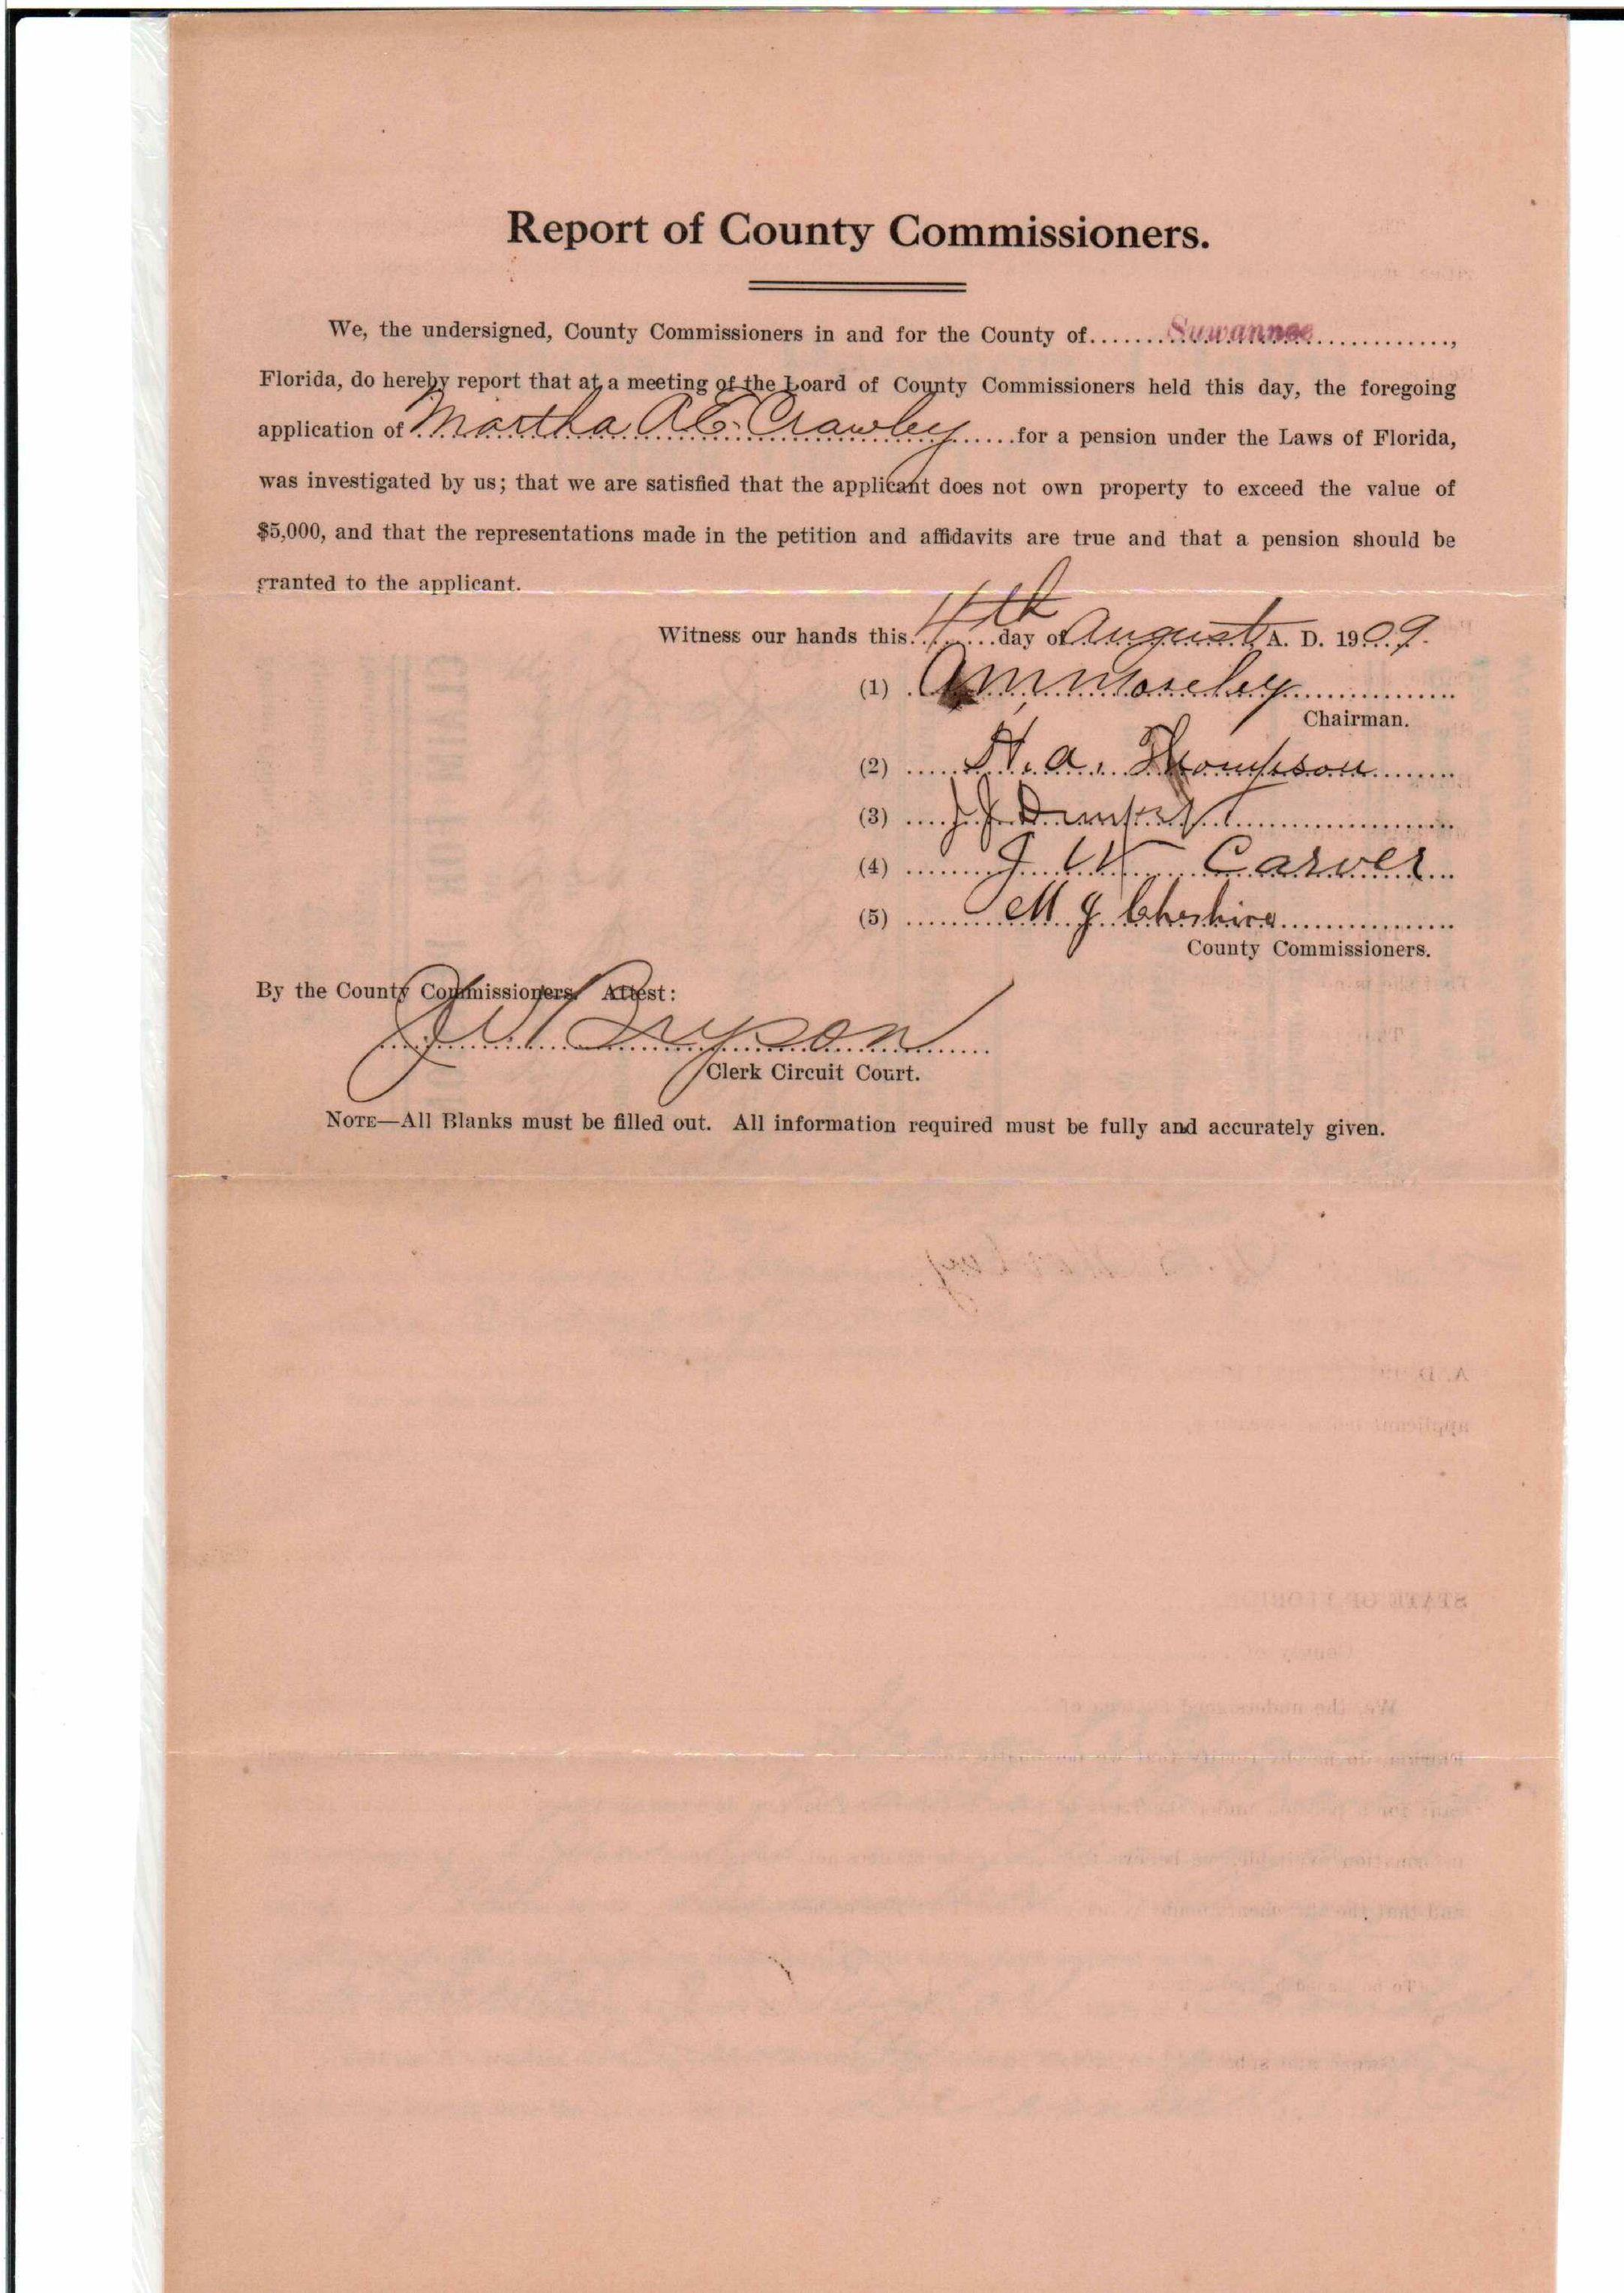 Report of County Commissioners.
We, the undersigned, County Commissioners in and for the County of Suwannee,
Florida, do hereby report that at a meeting of the Board of County Commissioners held this day, the foregoing
application of Martha A. E. Crawley for a pension under the Laws of Florida,
was investigated by us; that we are satisfied that the applicant does not own property to exceed the value of
$5,000, and that the representations made in the petition and affidavits are true and that a pension should be
granted to the applicant.
Witness our hands this 4th day of August A. D. 1909.
(1) A M Moseley
Chairman.
(2) H. A. Thompson
(3) J J
(4) J W Carver
(5) M J Cheshire
County Commissioners.
By the County Commissioners. Attest:
J W Bryson
Clerk Circuit Court.
NOTE—All Blanks must be filled out. All information required must be fully and accurately given.
STATE OF FLORIDA